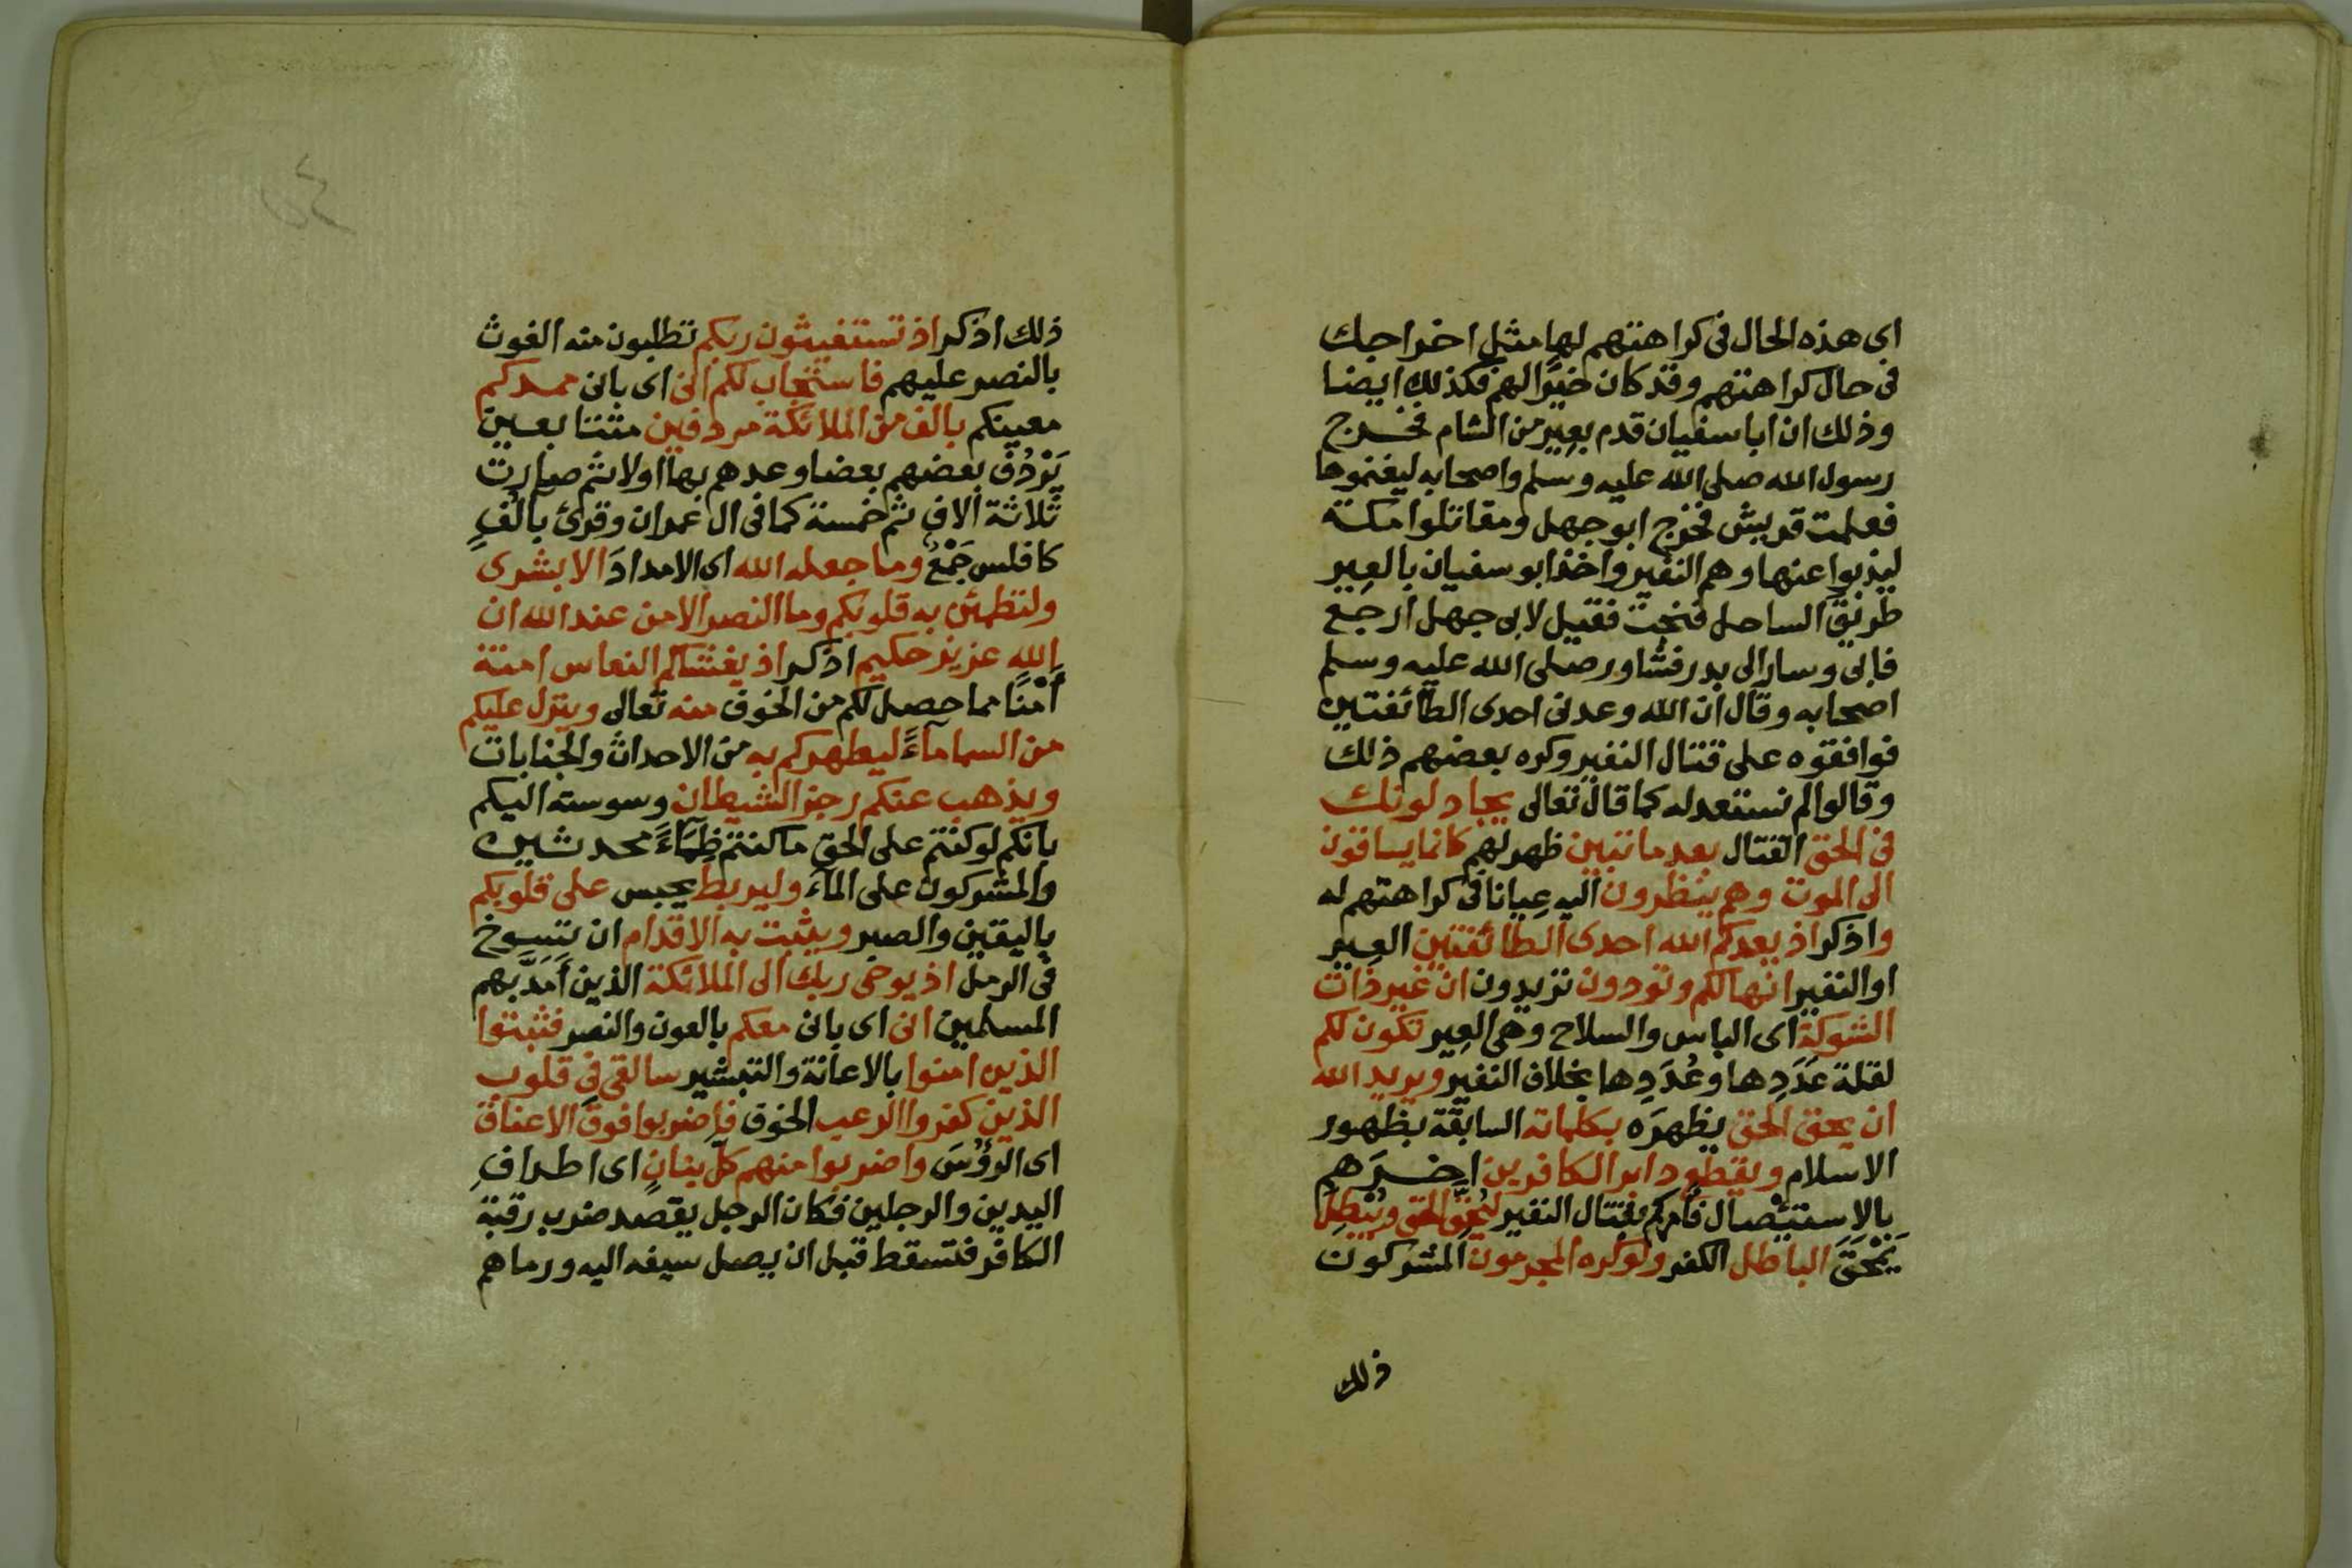 اى هذه الحال فى كراهتهم لها مثل اخراجك
فى حال كراهتهم وقد كان خيرًا لهم فكذلك ايضا
وذلك ان ابا سفيان قدم بعِيرٍ من الشام فخرج
رسول الله صلى الله عليه وسلم واصحابه ليغنموها
فعلمت قريش فخرج ابو جهل ومقاتلوا مكة
ليذبوا عنها وهم النفير واخذ ابو سفيان بالعِير
طريق الساحل فنجت فقيل لابى جهل ارجع
فابى وسار الى بدر فشاور صلى الله عليه وسلم
اصحابه وقال ان الله وعدنى احدى الطائفتين
فوافقوه على قتال النفير وكره بعضهم ذلك
وقالوا لم نستعد له كما قال تعالى يجادلونك
فى الحق القتال بعد ما تبين ظهر لهم كانما يساقون
الى الموت وهم ينظرون اليه عِيانا فى كراهتهم له
واذكر اذ يعدكم الله احدى الطائفتين العِير
او النفير انها لكم وتودون تريدون ان غير ذات
الشوكة اى الباس والسلاح وهى العِير تكون لكم
لقلة عَدَدِها وعُدَدِها بخلاف النفير ويريد الله
ان يحق الحق يظهرَه بكلماته السابقة بظهور
الاسلام ويقطع دابر الكافرين اخرَهم
بالاِستئصال فأمركم بقتال النفير ليُحِقَّ الحق ويُبْطِلَ
يَمْحَقَ الباطل الكفر ولو كره المجرمون المشركون
ذلك
ذلك اذكر اذ تستغيثون ربكم تطلبون منه الغوث
بالنصر عليهم فاستجاب لكم انى اى بانى ممدكم
معينكم بالف من الملائكة مردفين متتابعين
يَرْدُفُ بعضهم بعضا وعدهم بها اولا ثم صارت
ثلاثة الاف ثم خمسة كما فى ال عمران وقرئ بآلُفٍ
كافلس جَمْعٌ وما جعله الله اى الامدادَ الا بشرى
ولتطمئن به قلوبكم وما النصر الا من عند الله ان
الله عزيز حكيم اذكر اذ يغشاكم النعاس امنة
أَمْنًا مما حصل لكم من الخوف منه تعالى وينزل عليكم
من السما ماءً ليطهركم به من الاحداث والجنابات
ويذهب عنكم رجز الشيطان وسوسته اليكم
بانكم لوكنتم على الحق ما كنتم ظِمَاءً محدثين
والمشركون على الماء وليربط يحبس على قلوبكم
باليقين والصبر ويثبت به الاقدام ان تسوخ
فى الرمل اذ يوحى ربك الى الملائكة الذين أَمَدَّ بهم
المسلمين انى اى بانى معكم بالعون والنصر فثبتوا
الذين امنوا بالاعانة والتبشير سالقى فى قلوب
الذين كفروا الرعب الخوف فاضربوا فوق الاعناق
اى الرؤسَ واضربوا منهم كلّ بنانٍ اى اطرافِ
اليدين والرجلين فكان الرجل يقصد ضرب رقبة
الكافر فتسقط قبل ان يصل سيفه اليه ورماهم